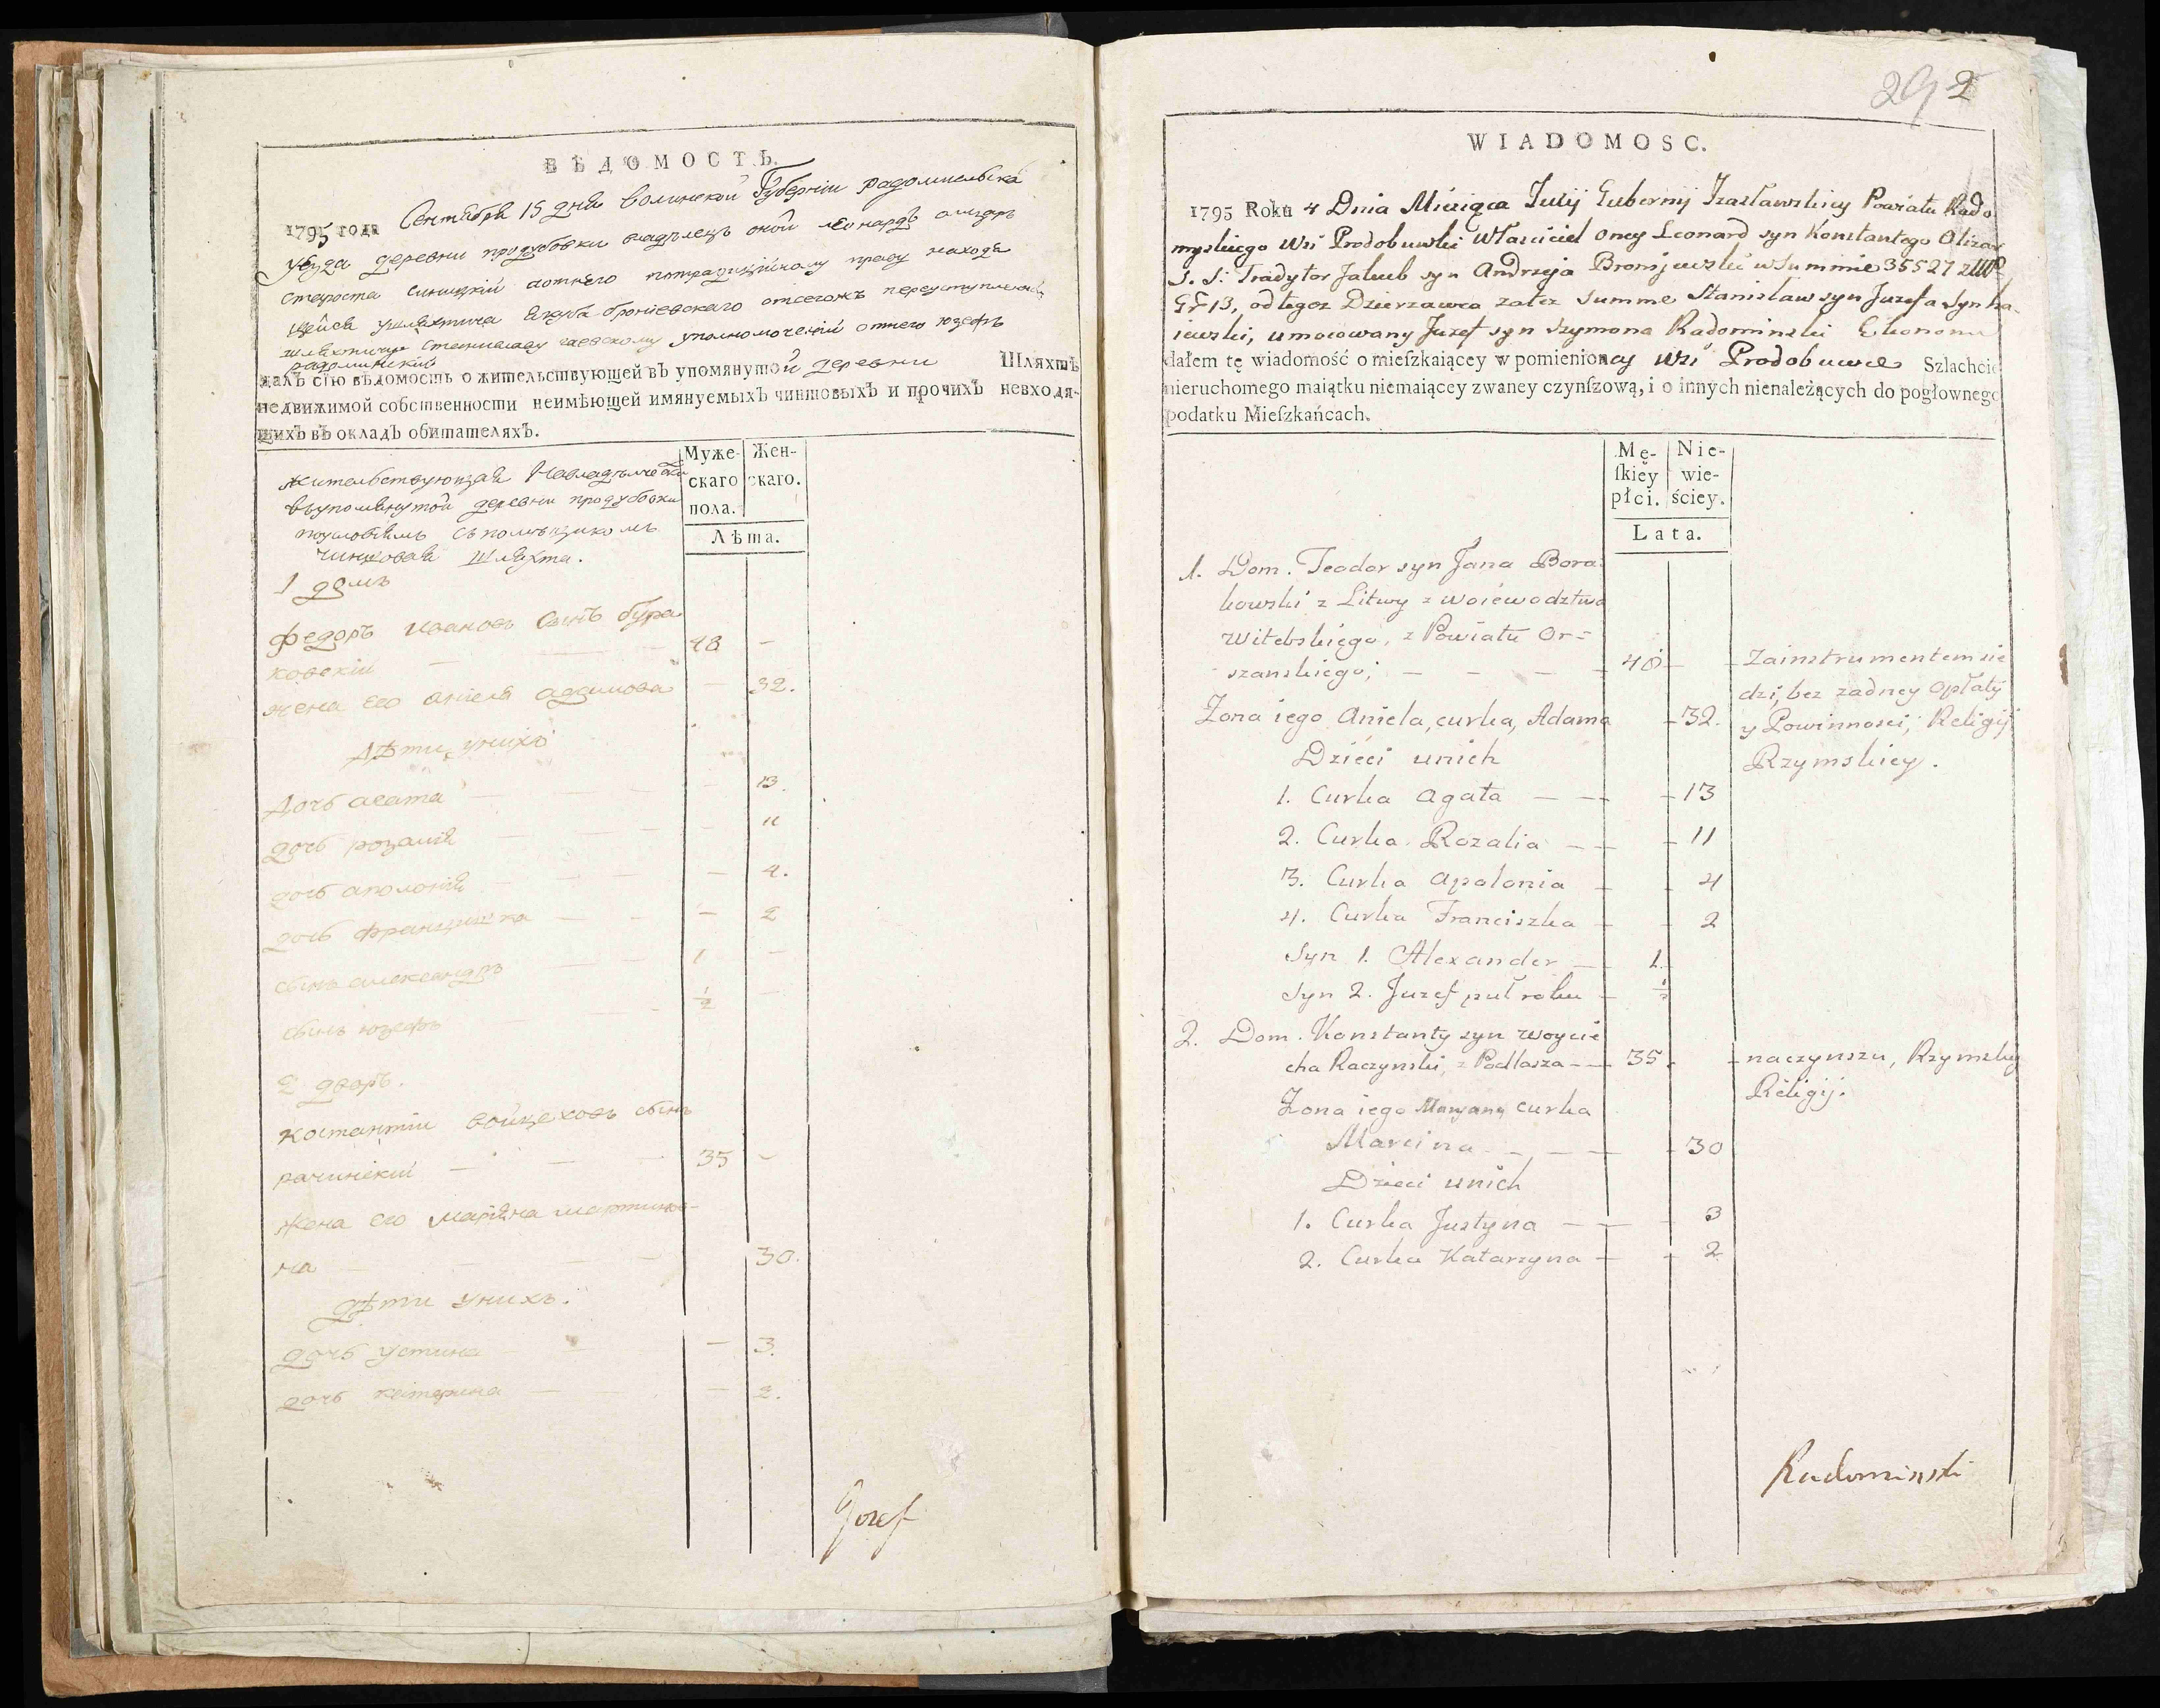 ВѢДОМОСТЬ.
1795 года Сентября 15 дня волинской Губернiи радомисльска
уезда деревни продубовки владѣлецъ оной леонардъ олизаръ
староста синицкiй аотнего потрадицiйному праву находя
щейся ушляхтича якуба бронiевскаго отсегожъ переуступленой
шляхтичу станиславу гаевскому уполномоченiй отнего юзефъ
радоминскiй
далъ сiю вѣдомость о жительствующей въ упомянутой деревни Шляхтѣ
недвижимой собственности неимѣющей имянуемыхъ чиншовыхъ и прочихъ невходя-
щихъ въ окладъ обитателяхъ.
Муже-скаго пола.
Жен-скаго.
Лѣта.
жительствующая
въупомянутой деревни продубовки
поусловиямъ съ помѣщикомъ
чиншовая шляхта.
1 домъ
федоръ ивановъ сынъ бура
ковскiй — — — 48 —
жена его анiеля адамова — 32.
дѣти унихъ
дочь агата — — — 13.
дочь розалiя — — — 11
дочь аполонiя — — — 4.
дочь францишка — — — 2
сынъ александръ — — 1 —
сынъ юзефъ — — 1/2 —
2 дворъ.
костантiи войцеховъ сынъ
рачинскiй — — — 35 —
жена его марiяна мартино-
на — — — 30.
дѣти унихъ.
дочь устина — — — 3.
дочь катерина — — — 2.
Jozef
292
WIADOMOSC.
1795 Roku 4 Dnia Miesiąca Julij Gubernij Izasławskiey Powiatu Rado
myskiego wsi Prodobuwki Właściciel oney Leonard syn Konstantego Olizar
S. S: Tradytor Jakub syn Andrzeja Broniewski w Summie 35527 zł
gr 13, odtegoż Dzierzawca zatęż Summe Stanisław syn Juzefa Synha-
iewski, umocowany Juzef syn Szymona Radominski Ekonom
dałem tę wiadomość o mieſzkaiącey w pomienioney wsi Prodobuwce Szlachcie
nieruchomego maiątku niemaiącey zwaney czynſzową, i o innych nienależących do pogłownego
podatku Mieſzkańcach.
Mę-ſkiey płci.
Nie-wie-ściey.
Lata.
1. Dom. Teodor syn Jana Bora
kowski z Litwy z woiewodztwa
Witebskiego, z Powiatu Or=
szanskiego; — — — — 48 — Zainstrumentem sie
dzi, bez zadney opłaty
Zona iego Aniela, curka, Adama — 32. y Powinnosci; Religij
Dzieci unich Rzymskiey.
1. Curka Agata — — — 13
2. Curka Rozalia — — — 11
3. Curka Apolonia — — 4
4. Curka Franciszka — — 2
Syn 1. Alexander — 1.
Syn 2. Juzef puł roku — 1/2
2. Dom. Konstanty syn Woycie
cha Raczynski, z Podlasza — — 35. — naczynszu, Rzymskiey
Religij.
Zona iego Maryana curka
Marcina — — — — 30
Dzieci unich
1. Curka Justyna — — — 3
2. Curka Katarzyna — — 2
Radominski